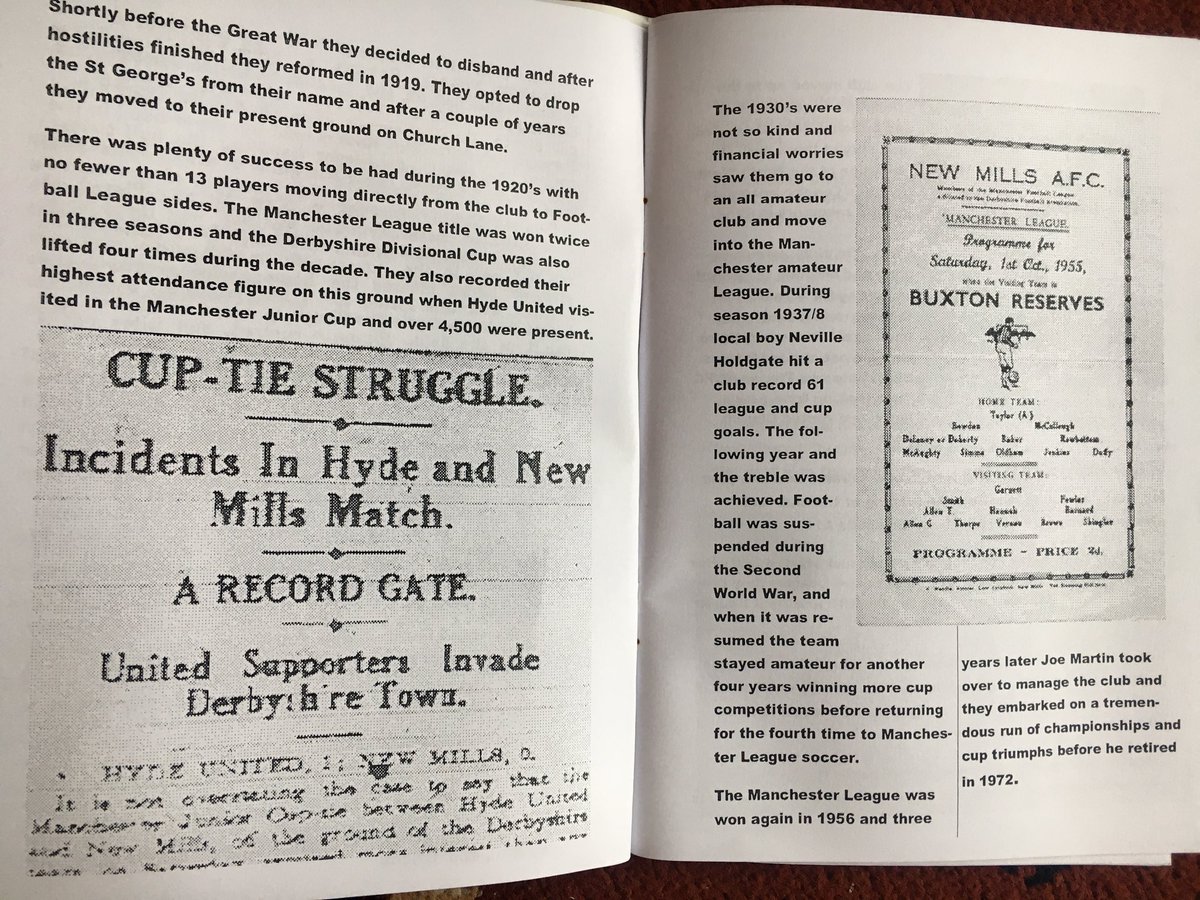 Shortly before the Great War they decided to disband and after
hostilities finished they reformed in 1919. They opted to drop
the St George's from their name and after a couple of years
they moved to their present ground on Church Lane.
There was plenty of success to be had during the 1920's with
no fewer than 13 players moving directly from the club to Foot-
ball League sides. The Manchester League title was won twice
in three seasons and the Derbyshire Divisional Cup was also
lifted four times during the decade. They also recorded their
highest attendance figure on this ground when Hyde United vis-
ited in the Manchester Junior Cup and over 4,500 were present.
CUP-TIE STRUGGLE.
Incidents In Hyde and New
Mills Match.
A RECORD GATE.
United Supporters Invade
Derbyshire Town.
HYDE UNITED, 1; NEW MILLS, 0.
It is not overrating the case to say that the
Manchester Junior Cup-tie between Hyde United
and New Mills, of the ground of the Derbyshire
The 1930's were
not so kind and
financial worries
saw them go to
an all amateur
club and move
into the Man-
chester amateur
League. During
season 1937/8
local boy Neville
Holdgate hit a
club record 61
league and cup
goals. The fol-
lowing year and
the treble was
achieved. Foot-
ball was sus-
pended during
the Second
World War, and
when it was re-
sumed the team
stayed amateur for another
four years winning more cup
competitions before returning
for the fourth time to Manches-
ter League soccer.
The Manchester League was
won again in 1956 and three
NEW MILLS A.F.C.
Members of the Manchester Football League
Affiliated to the Derbyshire Football Association.
MANCHESTER LEAGUE
Programme for
Saturday, 1st Oct., 1955,
when the Visiting Team is
BUXTON RESERVES
HOME TEAM:
Taylor (A)
Bowden McCullough
Delaney or Doherty Baker Rowbottom
McAughty Simms Oldham Jenkins Duffy
VISITING TEAM:
Garnett
Smith Fowler
Allen T. Hannah Barnard
Allen C Thorpe Vernon Brown Shingler
PROGRAMME - PRICE 2d.
years later Joe Martin took
over to manage the club and
they embarked on a tremen-
dous run of championships and
cup triumphs before he retired
in 1972.